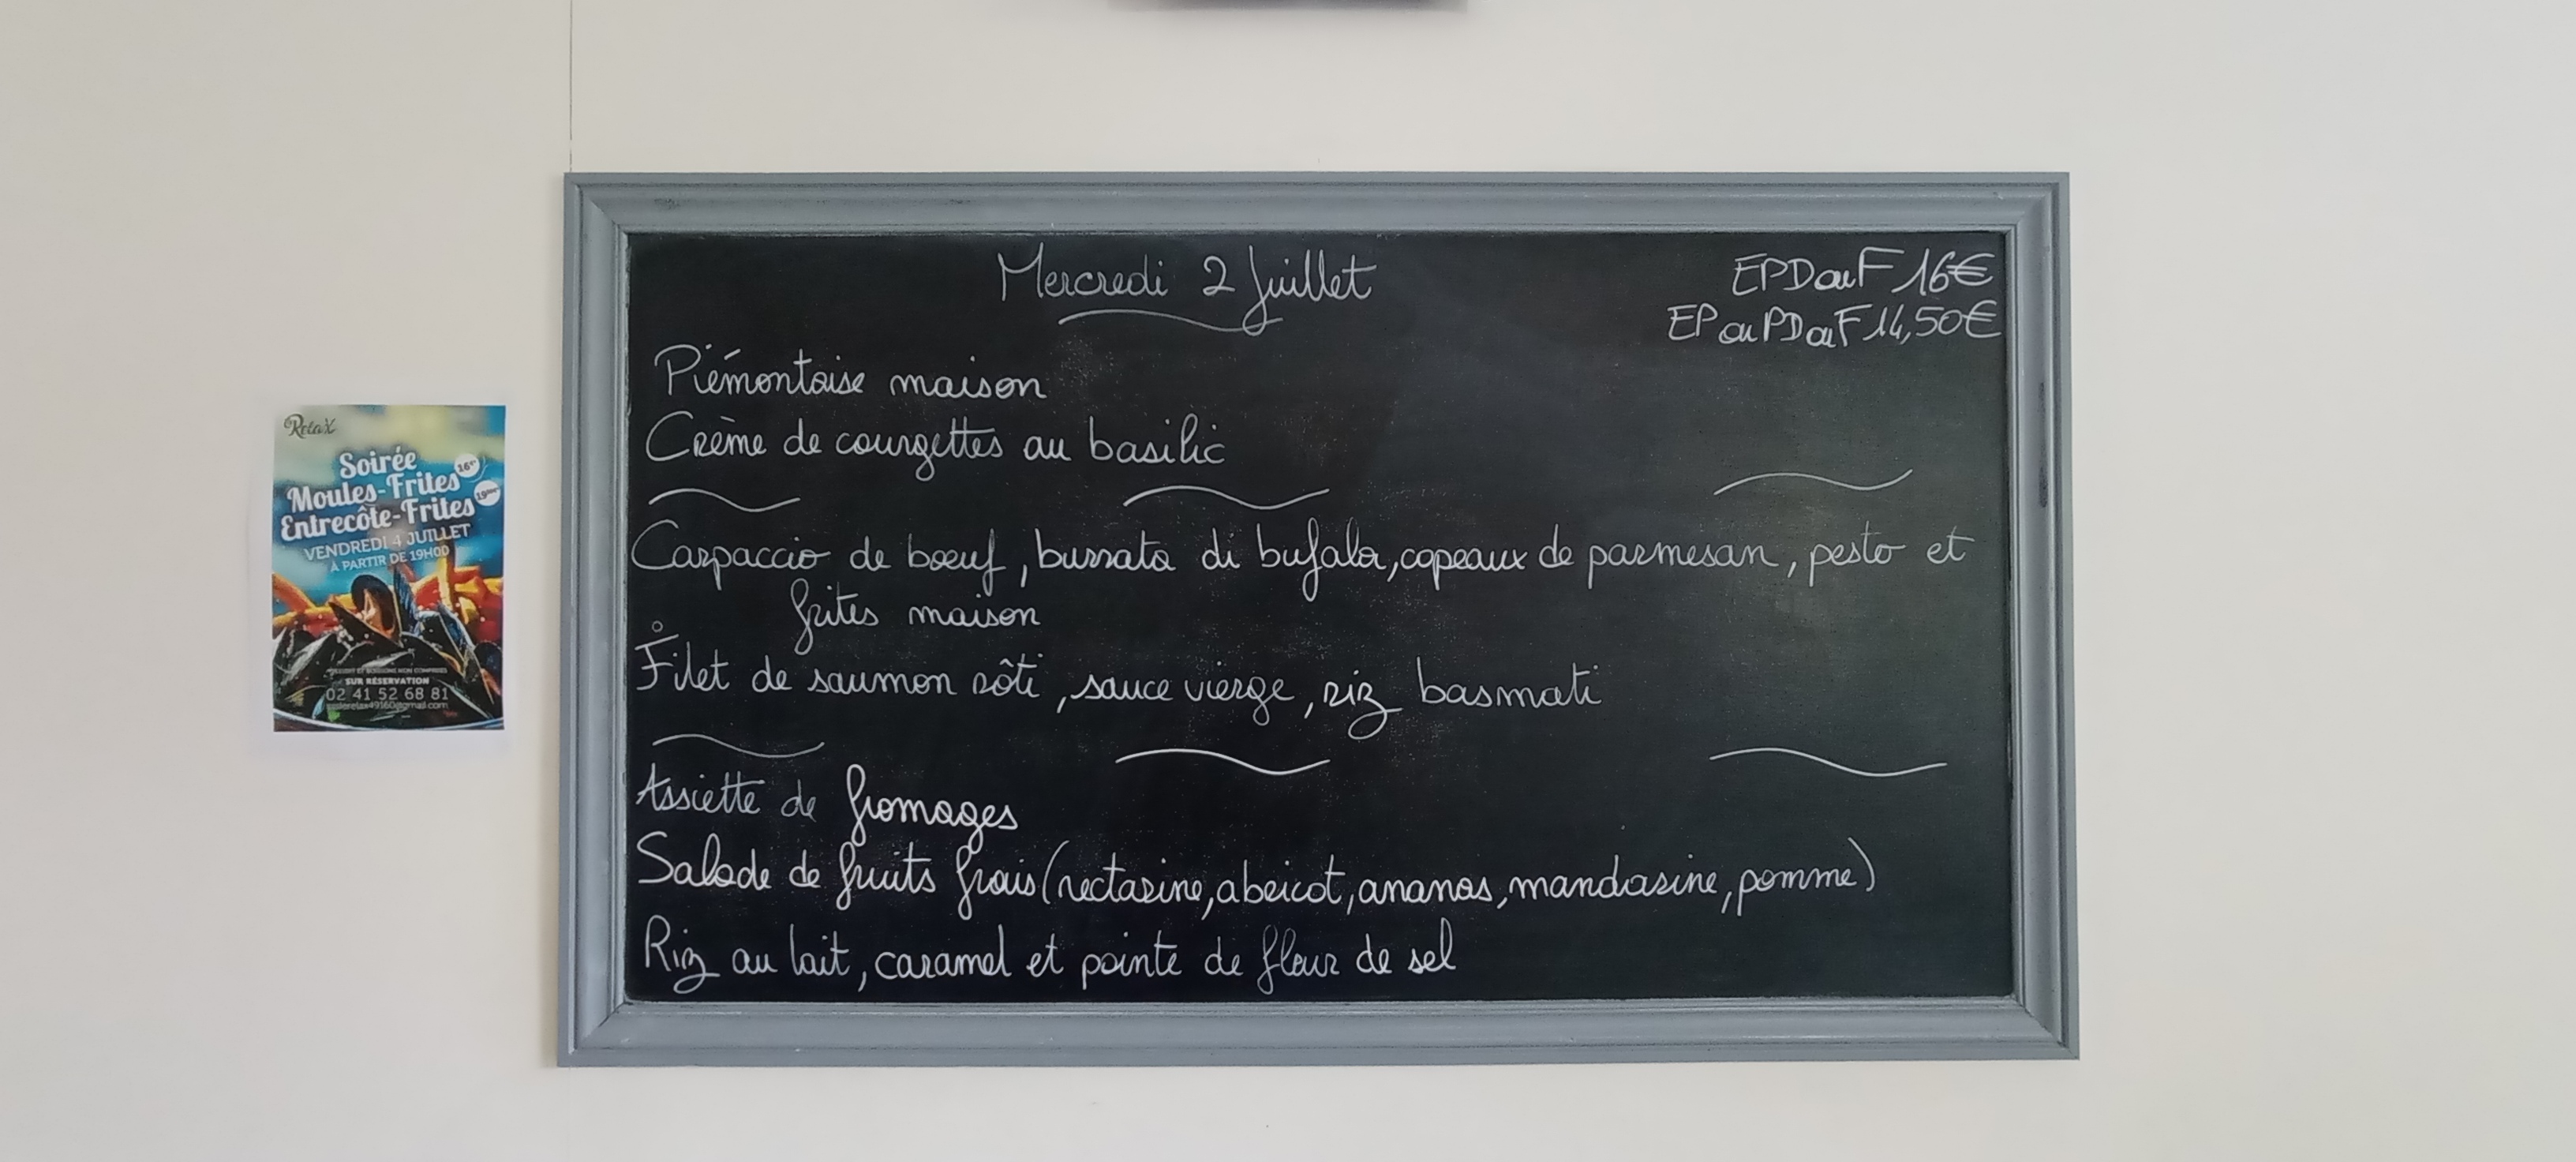 Mercredi 2 Juillet
EPDouF 16€
EP ou PDouF 14,50€
Piémontaise maison
Crème de courgettes au basilic
Carpaccio de bœuf, burrata di bufala, copeaux de parmesan, pesto et
frites maison
Filet de saumon rôti, sauce vierge, riz basmati
Assiette de fromages
Salade de fruits frais (nectarine, abricot, ananas, mandarine, pomme)
Riz au lait, caramel et pointe de fleur de sel
Relax
Soirée
Moules-Frites
Entrecôte-Frites
VENDREDI 4 JUILLET
À PARTIR DE 19H00
SUR RÉSERVATION
02 41 52 68 81